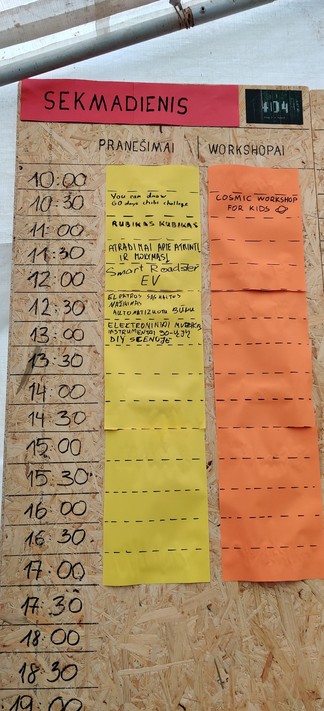 SEKMADIENIS
404
PRANEŠIMAI
WORKSHOPAI
10:00
10:30
You can draw
60 days challenge
COSMIC WORKSHOP
FOR KIDS
11:00
RUBIKAS KUBIKAS
11:30
ATRADIMAI APIE ATMINTĮ
IR MOKYMĄSI
12:00
Smart Roadster
EV
12:30
ELEKTROS SĄNAUDOS
MAŽINIMAS
AUTOMATIZUOTU BŪDU
13:00
ELEKTRONINIAI MUZIKOS
INSTRUMENTAI
DIY SCENOJE
13:30
14:00
14:30
15:00
15:30
16:00
16:30
17:00
17:30
18:00
18:30
19:00